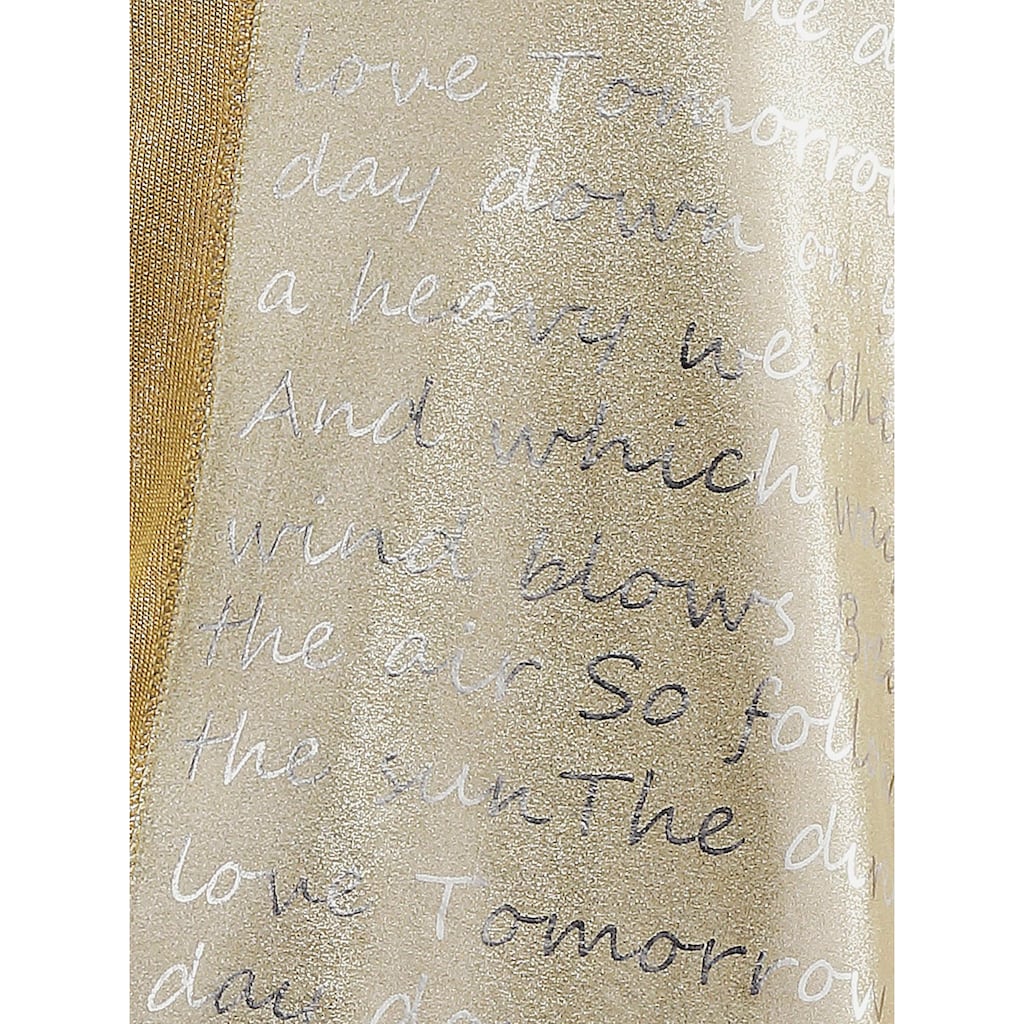 love Tomorrow
day down
a heavy weigh
And which
wind blows
the air So foll
the sun The
love Tomorrow
day